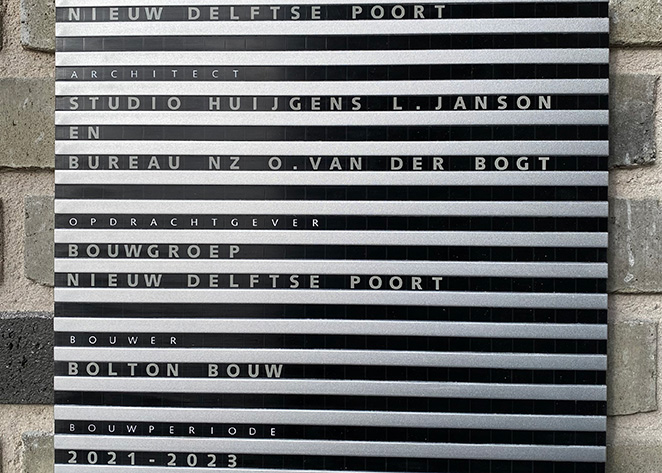 NIEUW DELFTSE POORT
ARCHITECT
STUDIO HUIJGENS L.JANSON
EN
BUREAU NZ O.VAN DER BOGT
OPDRACHTGEVER
BOUWGROEP
NIEUW DELFTSE POORT
BOUWER
BOLTON BOUW
BOUWPERIODE
2021-2023